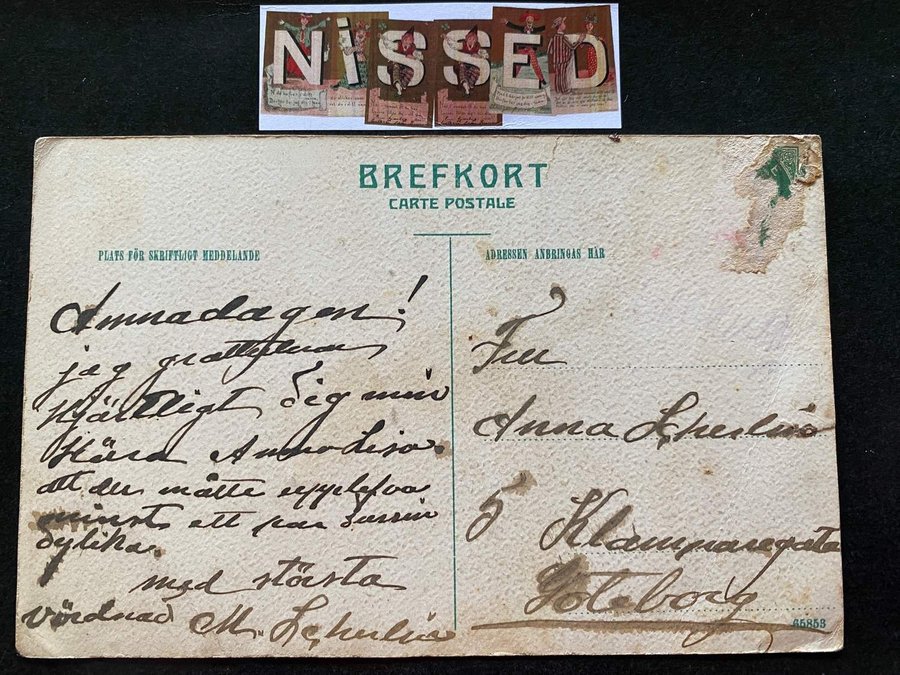 NiSSED
BREFKORT
CARTE POSTALE
PLATS FÖR SKRIFTLIGT MEDDELANDE
ADRESSEN ANBRINGAS HÄR
Annadagen!
jag gratulerar
Hjärtligt Dig min
Kära Anna Lisa.
att du måtte upplefva
minst ett par dussin
dylika.
med största
vördnad M.
Fru
Anna
5 Klamparegatan
Göteborg
65853